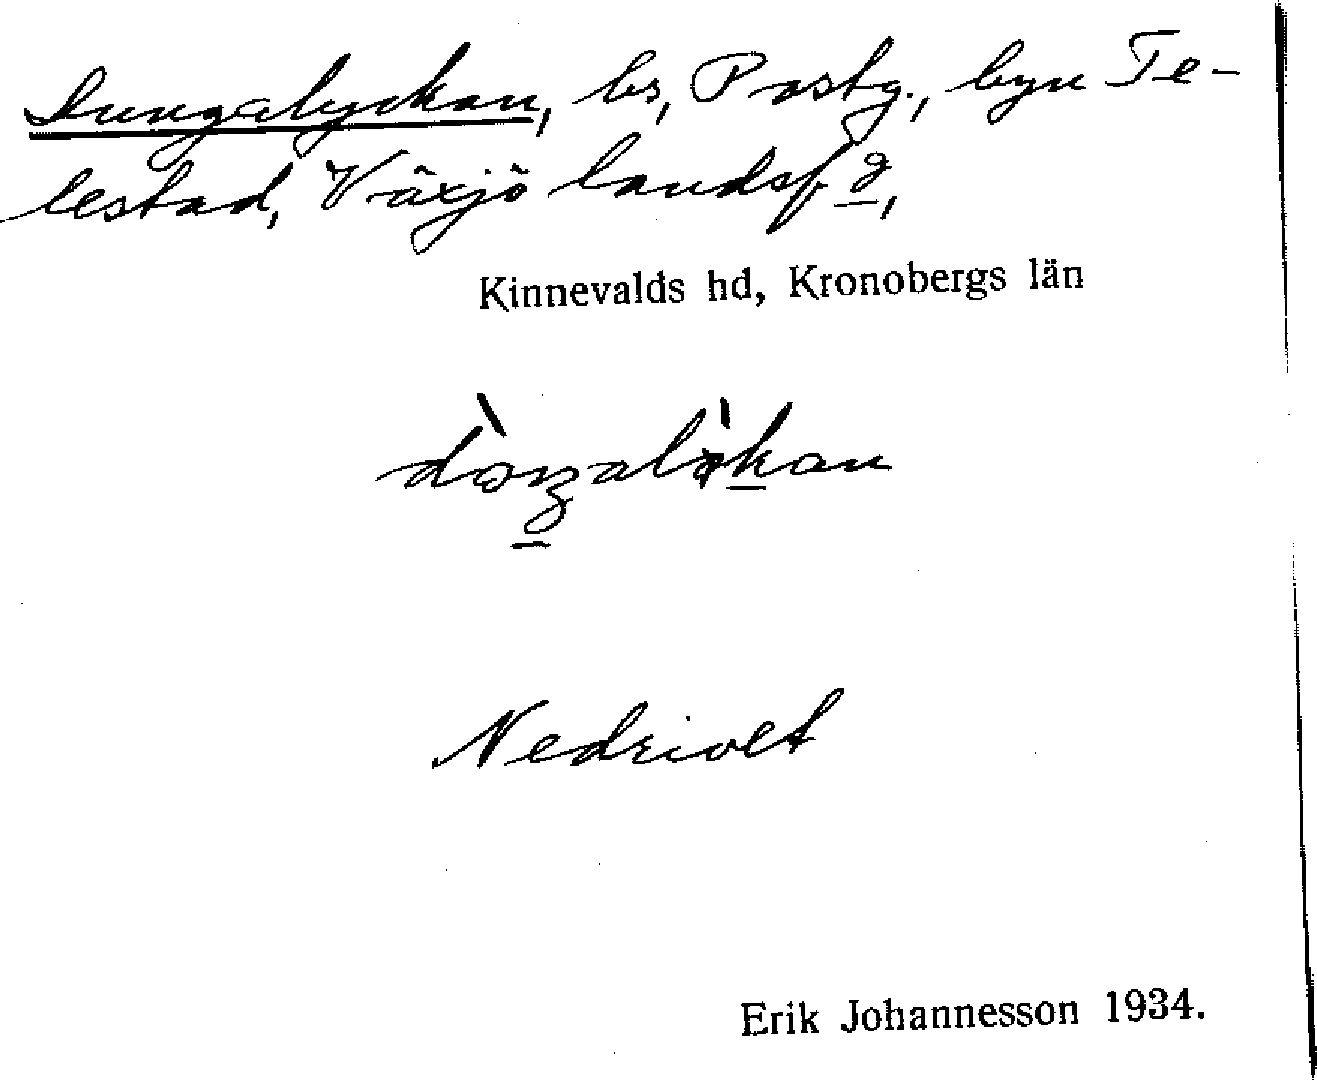 Dungalyckan, bs, Prästg., byn Te-
lestad, Växjö landsf g,
Kinnevalds hd, Kronobergs län
Nedrivet
Erik Johannesson 1934.